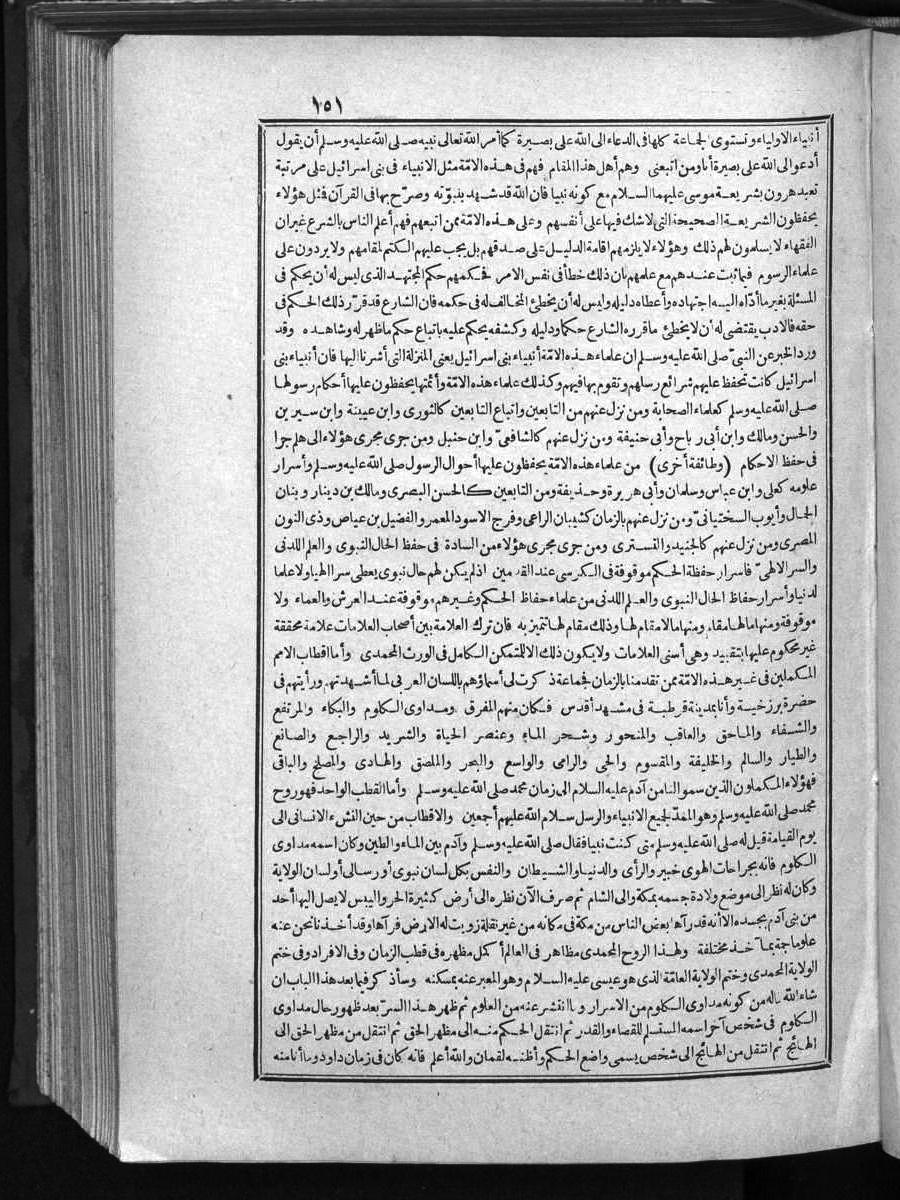 ١٥١
أنبياء الاولياء وتستوى الجماعة كلها فى الدعاء الى الله على بصيرة كما أمر الله تعالى نبيه صلى الله عليه وسلم أن يقول
أدعو الى الله على بصيرة أنا ومن اتبعنى وهم أهل هذا المقام فهم فى هذه الامّة مثل الانبياء فى بنى اسرائيل على مرتبة
تعبد هرون بشريعة موسى عليهما السلام مع كونه نبيا فان الله قد شهد بنبوّته وصرّح بها فى القرآن فمثل هؤلاء
يحفظون الشريعة الصحيحة التى لاشك فيها على أنفسهم وعلى هذه الامّة ممن اتبعهم فهم أعلم الناس بالشرع غيران
الفقهاء لا يسلمون لهم ذلك وهؤلاء لا يلزمهم اقامة الدليل على صدقهم بل يجب عليهم الكتم لمقامهم ولا يردون على
علماء الرسوم فيما ثبت عندهم مع علمهم بان ذلك خطأ فى نفس الامر فحكمهم حكم المجتهد الذى ليس له أن يحكم فى
المسئلة بغير ما أدّاه اليه اجتهاده وأعطاه دليله وليس له أن يخطئ المخالف له فى حكمه فان الشارع قد قرّر ذلك الحكم فى
حقه فالادب يقتضى له أن لا يخطئ ماقرره الشارع حكما ودليله وكشفه يحكم عليه باتباع حكم ماظهر له وشاهده وقد
ورد الخبر عن النبىّ صلى الله عليه وسلم ان علماء هذه الامّة أنبياء بنى اسرائيل يعنى المنزلة التى أشرنا اليها فان أنبياء بنى
اسرائيل كانت تحفظ عليهم شرائع رسلهم وتقوم بها فيهم وكذلك علماء هذه الامّة وأئمتها يحفظون عليها أحكام رسولها
صلى الله عليه وسلم كعلماء الصحابة ومن نزل عنهم من التابعين واتباع التابعين كالثورى وابن عيينة وابن سيرين
والحسن ومالك وابن أبى رباح وأبى حنيفة ومن نزل عنهم كالشافعىّ وابن حنبل ومن جرى مجرى هؤلاء الى هلم جرا
فى حفظ الاحكام (وطائفة أخرى) من علماء هذه الامّة يحفظون عليها أحوال الرسول صلى الله عليه وسلم وأسرار
علومه كعلى وابن عباس وسلمان وأبى هريرة وحذيفة ومن التابعين كالحسن البصرى ومالك بن دينار وبنان
الحمال وأيوب السختيانىّ ومن نزل عنهم بالزمان كشيبان الراعى وفرج الاسود المعمر والفضيل بن عياض وذى النون
المصرى ومن نزل عنهم كالجنيد والتسترى ومن جرى مجرى هؤلاء من السادة فى حفظ الحال النبوى والعلم اللدنى
والسر الالهىّ فاسرار حفظة الحكم موقوفة فى الكرسى عند القدمين اذ لم يكن لهم حال نبوى يعطى سرا الهيا ولا علما
لدنيا وأسرار حفاظ الحال النبوى والعلم اللدنى من علماء حفاظ الحكم وغيرهم موقوفة عند العرش والعماء ولا
موقوفة ومنها مالها مقام ومنها مالا مقام لها وذلك مقام لها تتميز به فان ترك العلامة بين أصحاب العلامات علامة محققة
غير محكوم عليها بتقييد وهى أسنى العلامات ولا يكون ذلك الا للمتمكن الكامل فى الورث المحمدى وأما أقطاب الامم
المكملين فى غير هذه الامّة ممن تقدمنا بالزمان فجماعة ذكرت لى أسماؤهم باللسان العربى لما أشهدتهم ورأيتهم فى
حضرة برزخية وأنا بمدينة قرطبة فى مشهد أقدس فكان منهم المفرق ومداوى الكلوم والبكاء والمرتفع
والشفاء والماحق والعاقب والمنحور وشحر الماء وعنصر الحياة والشريد والراجع والصانع
والطيار والسالم والخليفة والمقسوم والحى والرامى والواسع والبحر والملصق والهادى والمصلح والباقى
فهؤلاء المكملون الذين سموا لنا من آدم عليه السلام الى زمان محمد صلى الله عليه وسلم وأما القطب الواحد فهو روح
محمد صلى الله عليه وسلم وهو الممدّ لجميع الانبياء والرسل سلام الله عليهم أجمعين والاقطاب من حين النشء الانسانى الى
يوم القيامة قيل له صلى الله عليه وسلم متى كنت نبيا فقال صلى الله عليه وسلم وآدم بين الماء والطين وكان اسمه مداوى
الكلوم فانه بجراحات الهوى خبير والرأى والدنيا والشيطان والنفس بكل لسان نبوى أو رسالى أو لسان الولاية
وكان له نظر الى موضع ولادة جسمه بمكة والى الشام ثم صرف الآن نظره الى أرض كثيرة الحر واليبس لا يصل اليها أحد
من بنى آدم بجسده الا أنه قد رآها بعض الناس من مكة فى مكانه من غير نقلة زويت له الارض فرآها وقد أخذنا نحن عنه
علوما جمة بمآخذ مختلفة ولهذا الروح المحمدى مظاهر فى العالم أكمل مظهره فى قطب الزمان وفى الافراد وفى ختم
الولاية المحمدى وختم الولاية العامّة الذى هو عيسى عليه السلام وهو المعبر عنه بمسكنه وسأذكر فيما بعد هذا الباب ان
شاء الله ماله من كونه مداوى الكلوم من الاسرار وما انتشر عنه من العلوم ثم ظهر هذا السرّ بعد ظهور حال مداوى
الكلوم فى شخص آخر اسمه المستسلم للقضاء والقدر ثم انتقل الحكم منه الى مظهر الحق ثم انتقل من مظهر الحق الى
الهائج ثم انتقل من الهائج الى شخص يسمى واضع الحكم وأظنه لقمان والله أعلم فانه كان فى زمان داود وما أنا منه